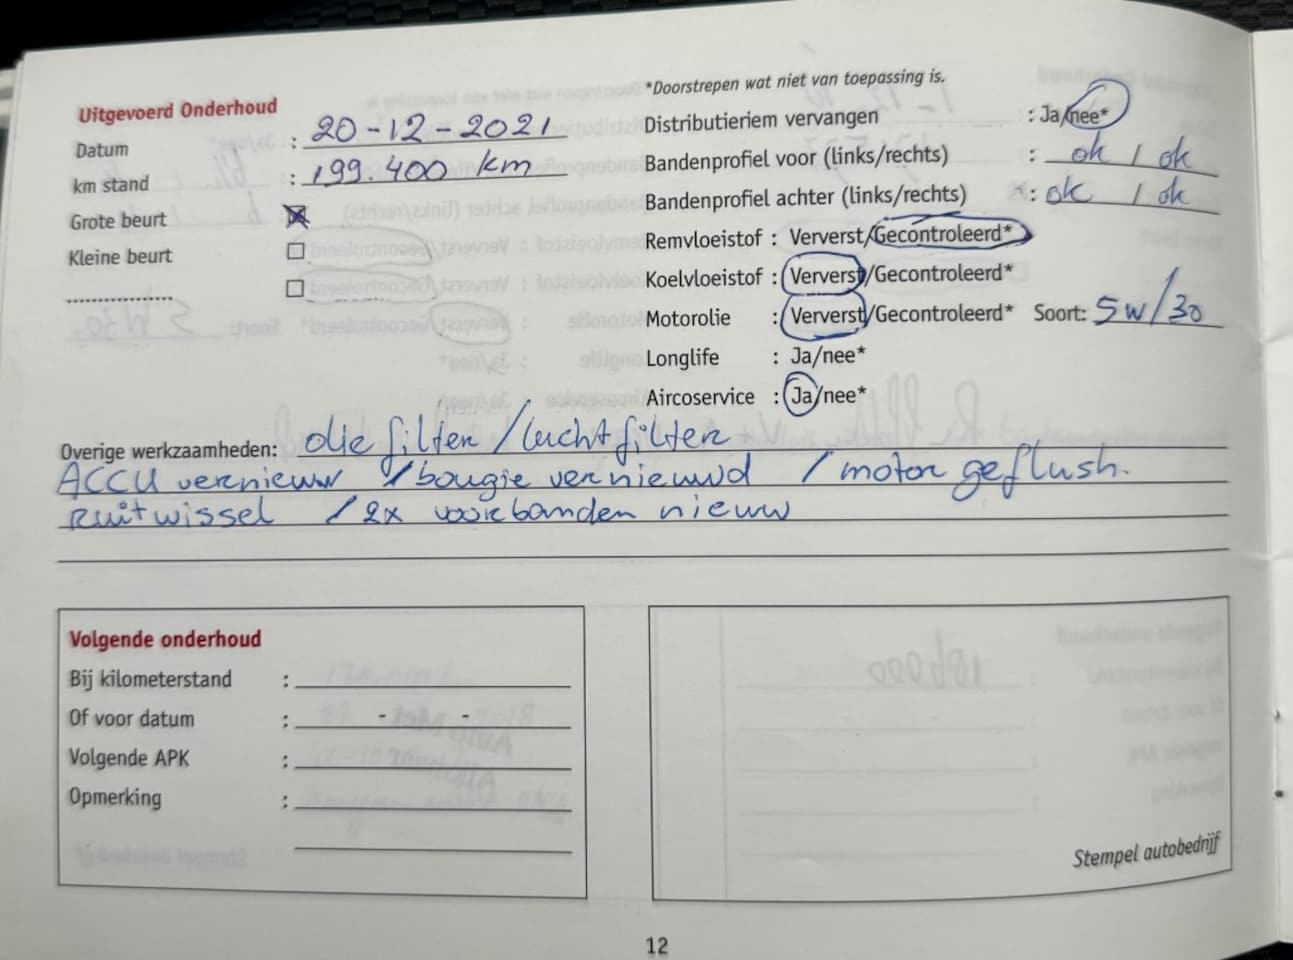 *Doorstrepen wat niet van toepassing is.
Uitgevoerd Onderhoud
Datum : 20-12-2021
km stand : 199.400 km
Grote beurt
Kleine beurt
....................
Distributieriem vervangen : Ja/nee*
Bandenprofiel voor (links/rechts) : ok / ok
Bandenprofiel achter (links/rechts) : ok / ok
Remvloeistof : Ververst/Gecontroleerd*
Koelvloeistof : Ververst/Gecontroleerd*
Motorolie : Ververst/Gecontroleerd* Soort: 5w/30
Longlife : Ja/nee*
Aircoservice : Ja/nee*
Overige werkzaamheden: olie filter / lucht filter
ACCU vernieuw / bougie vernieuwd / motor geflush.
Ruitwissel / 2x voorbanden nieuw
Volgende onderhoud
Bij kilometerstand :
Of voor datum : - -
Volgende APK :
Opmerking :
Stempel autobedrijf
12